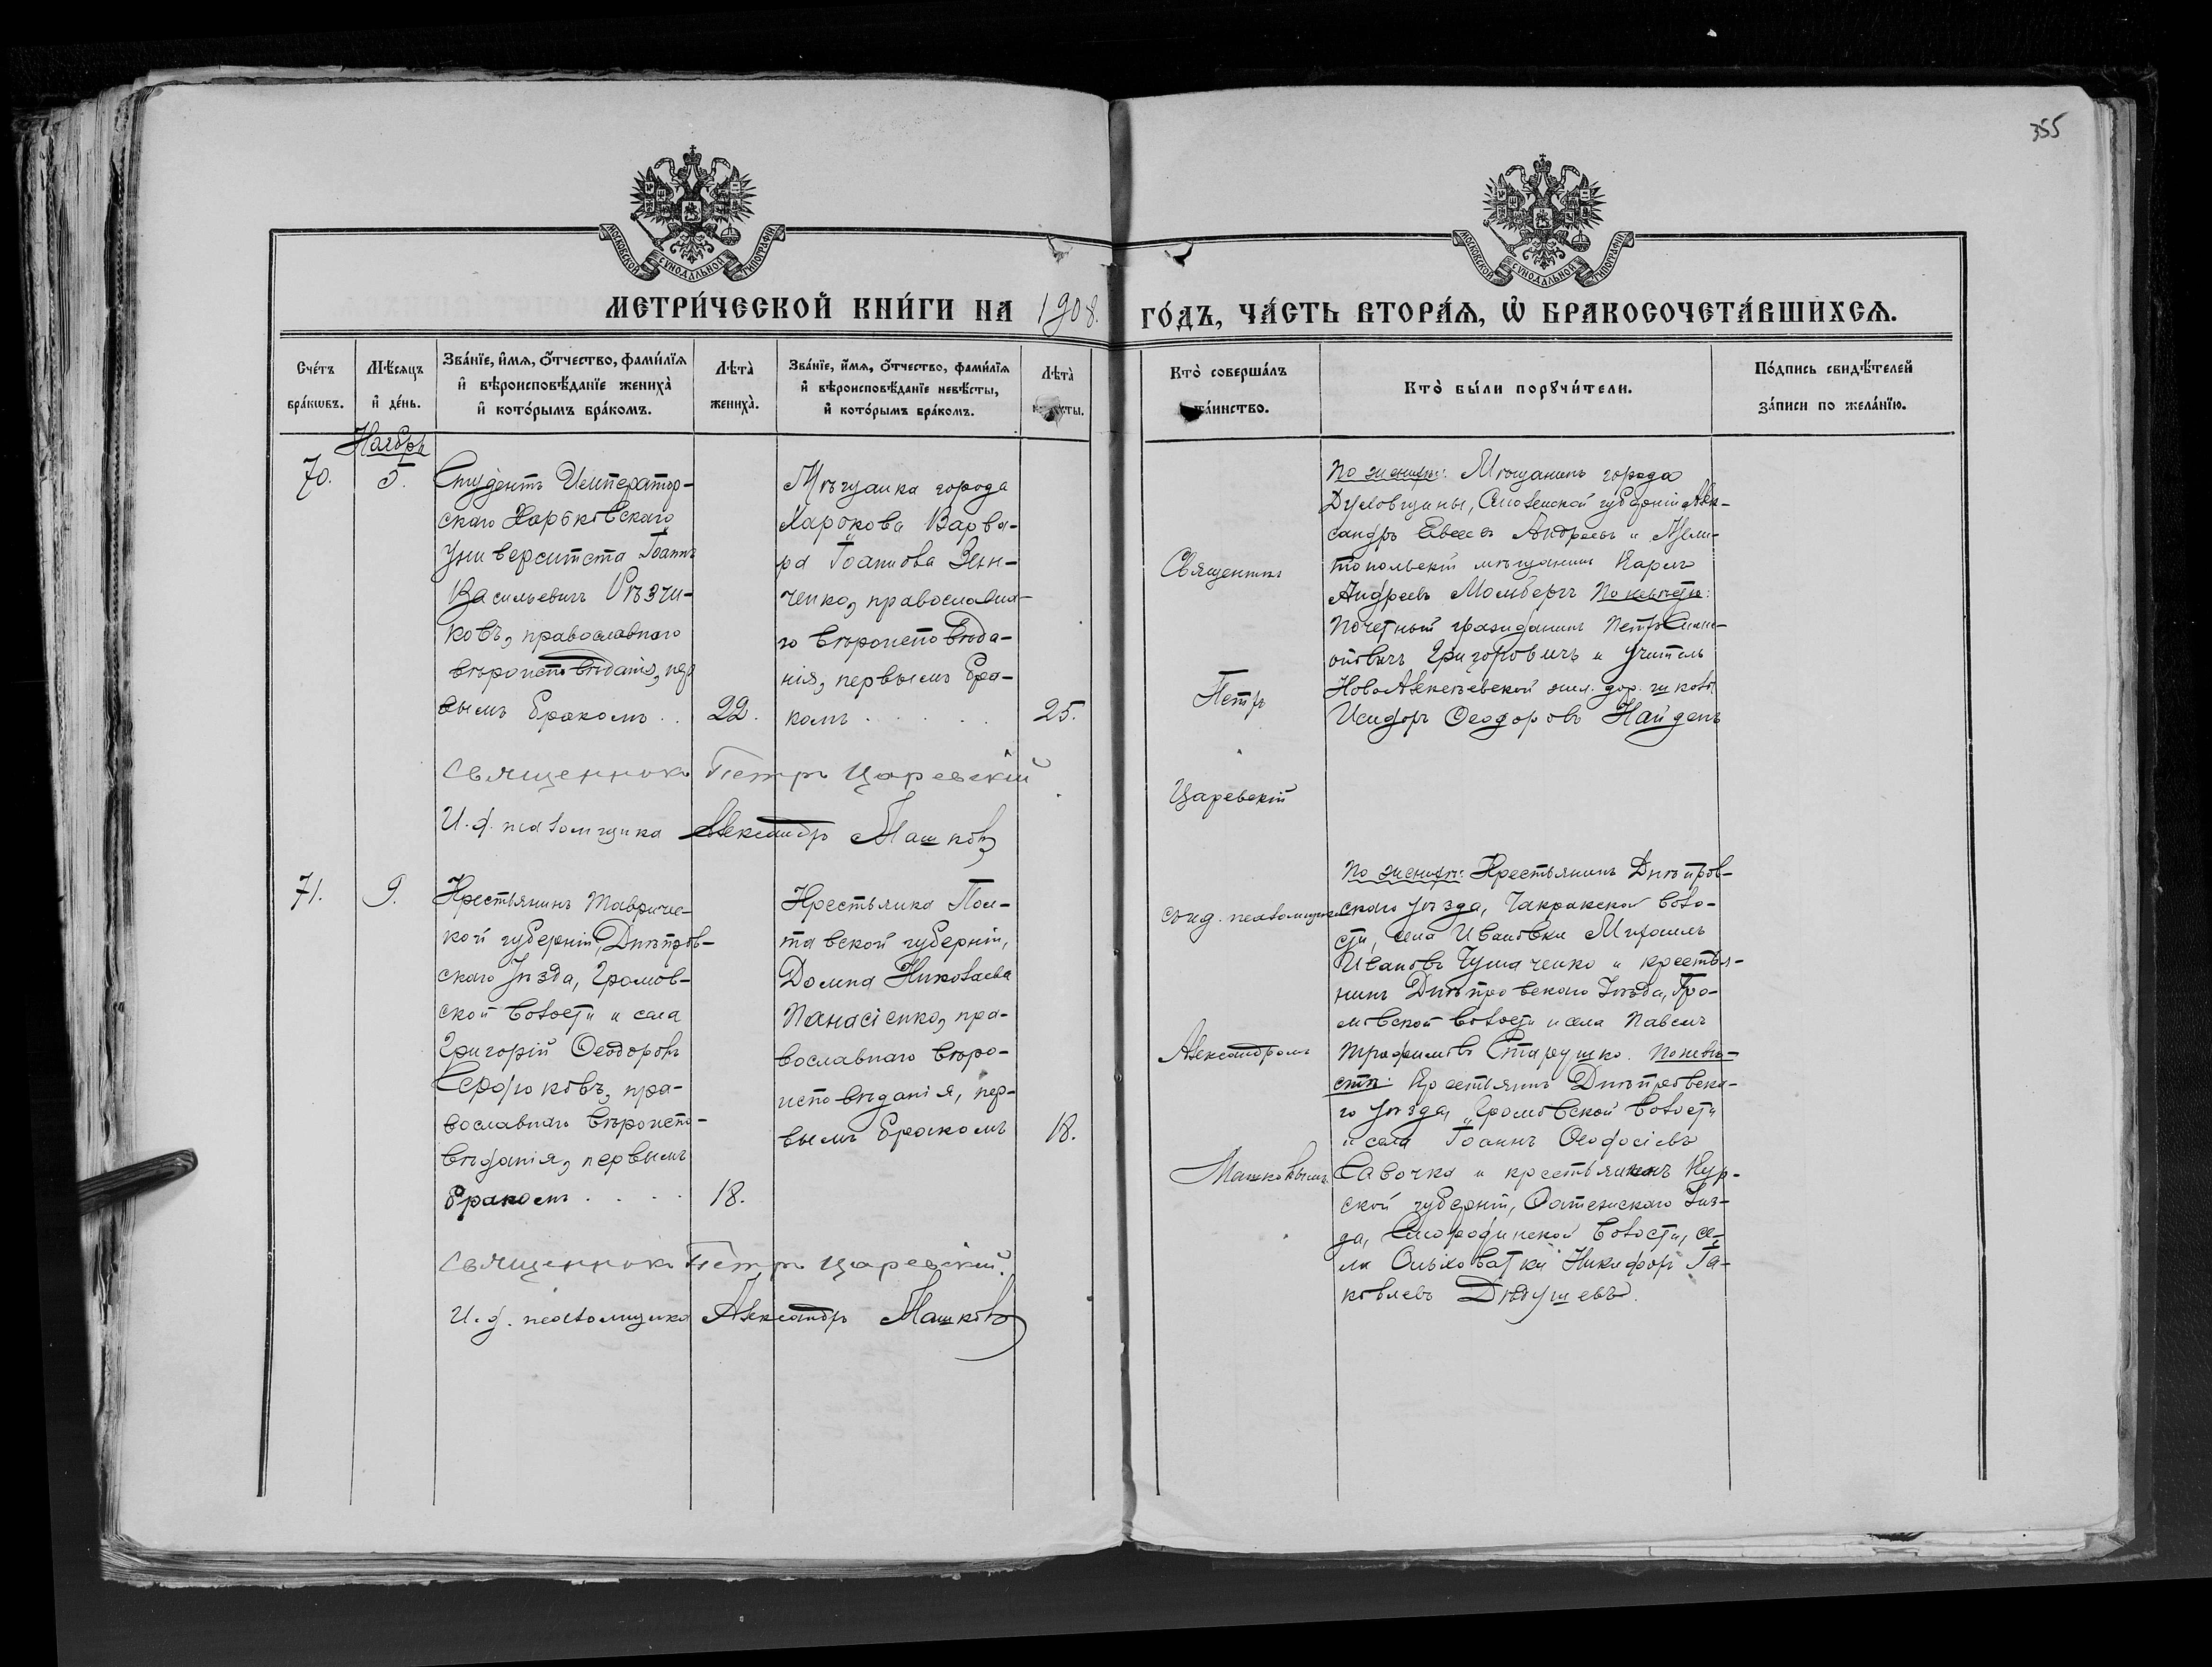 355
МОСКОВСКОЙ СѴНОДАЛЬНОЙ ТИПОГРАФІИ
МОСКОВСКОЙ СѴНОДАЛЬНОЙ ТИПОГРАФІИ
МЕТРИ́ЧЕСКОЙ КНИ́ГИ НА 1908. ГО́ДЪ, ЧА́СТЬ ВТОРА́Ѧ, Ѽ БРАКОСОЧЕТА́ВШИХСѦ.
Сче́тъ бра́кωвъ.
Мѣ́сяцъ и҆ де́нь.
Зва́нїе, и҆́мя, ѻ҆́тчество, фами́лїя
и҆ вѣроисповѣ́данїе жениха̀
и҆ кото́рымъ бра́комъ.
Лѣта̀ жениха̀.
Зва́нїе, и҆́мя, ѻ҆́тчество, фами́лїя
и҆ вѣроисповѣ́данїе невѣ́сты,
и҆ кото́рымъ бра́комъ.
Лѣта̀
Кто̀ соверша́лъ та́инство.
Кто̀ бы́ли порꙋчи́тели.
По́дпись свидѣ́телей
за́писи по жела́нїю.
Ноябрь
70.
5.
Студентъ Император-
скаго Харьковскаго
Университета Іоаннъ
Васильевичъ Рѣзчи-
ковъ, православнаго
вѣроисповѣданія, пер
вымъ бракомъ . .
22.
Мѣщанка города
Харькова Варва-
ра Іоаннова Зен-
ченко, православна-
го вѣроисповѣда-
нія, первымъ бра-
комъ . . . . .
25.
Священникъ
Петръ
Царевскій
По женихѣ: Мѣщанинъ города
Духовщины, Смоленской губерніи Алек-
сандръ Андреевъ и Мели-
топольскій мѣщанинъ Карлъ
Андреевъ Момбергъ По невѣстѣ:
Почетный гражданинъ Петръ
Григоровичъ и учитель
НовоАлексѣевской жел. дор. школы
Исидоръ Ѳеодоровъ Найденъ
Священникъ Петръ Царевскій
И. д. псаломщика Александръ Машковъ
71.
9.
Крестьянинъ Тавриче-
кой губерніи, Днѣпров-
скаго Уѣзда, Громов-
ской волости и села
Григорій Ѳеодоровъ
пра-
вославнаго вѣроиспо-
вѣданія, первымъ
бракомъ . . . .
18.
Крестьянка Пол-
тавской губерніи,
Домна Николаева
Панасіенко, пра-
вославнаго вѣро-
исповѣданія, пер-
вымъ бракомъ
18.
съ и д. псаломщика
Александромъ
Машковымъ
По женихѣ: Крестьянинъ Днѣпров-
скаго уѣзда, Чакракской воло-
сти, села Ивановки Михаилъ
Ивановъ Чумаченко и крестья-
нинъ Днѣпровскаго Уѣзда, Гро-
мовской волости и села Павелъ
Трофимовъ Старушко. По невѣ-
стѣ: Крестьянинъ Днѣпровска-
го уѣзда, Громовской волости
и села Іоаннъ Ѳеодосіевъ
Савочка и крестьянинъ Кур-
ской губерніи, Фатежскаго Уѣз-
да, волости, се-
ла Ольховатки Никифоръ Іа-
ковлевъ Дѣдушевъ.
Священникъ Петръ Царевскій.
И. д. псаломщика Александръ Машковъ